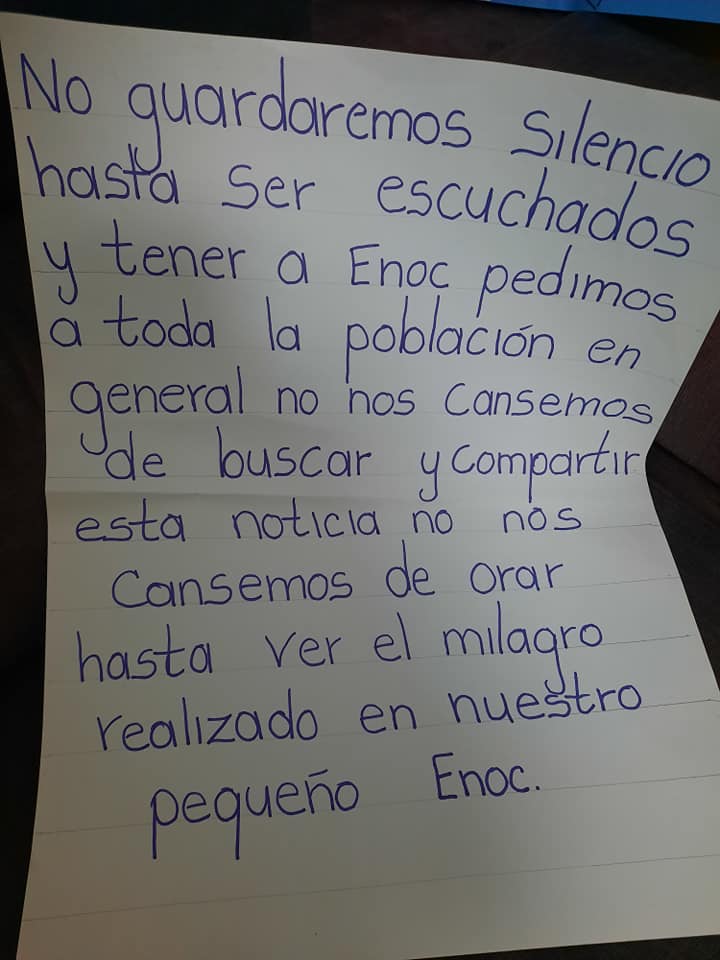 No guardaremos Silencio
hasta ser escuchados
y tener a Enoc pedimos
a toda la población en
general no nos cansemos
de buscar y compartir
esta noticia no nos
Cansemos de orar
hasta ver el milagro
realizado en nuestro
pequeño Enoc.